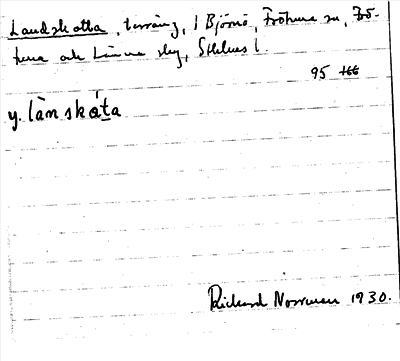 Landskotta, terräng, i Björnö, Frötuna sn, Frö-
tuna och Länna skg, Sthlms l.
95 166
y. lànskát̲a
Rickard Norrman 1930.